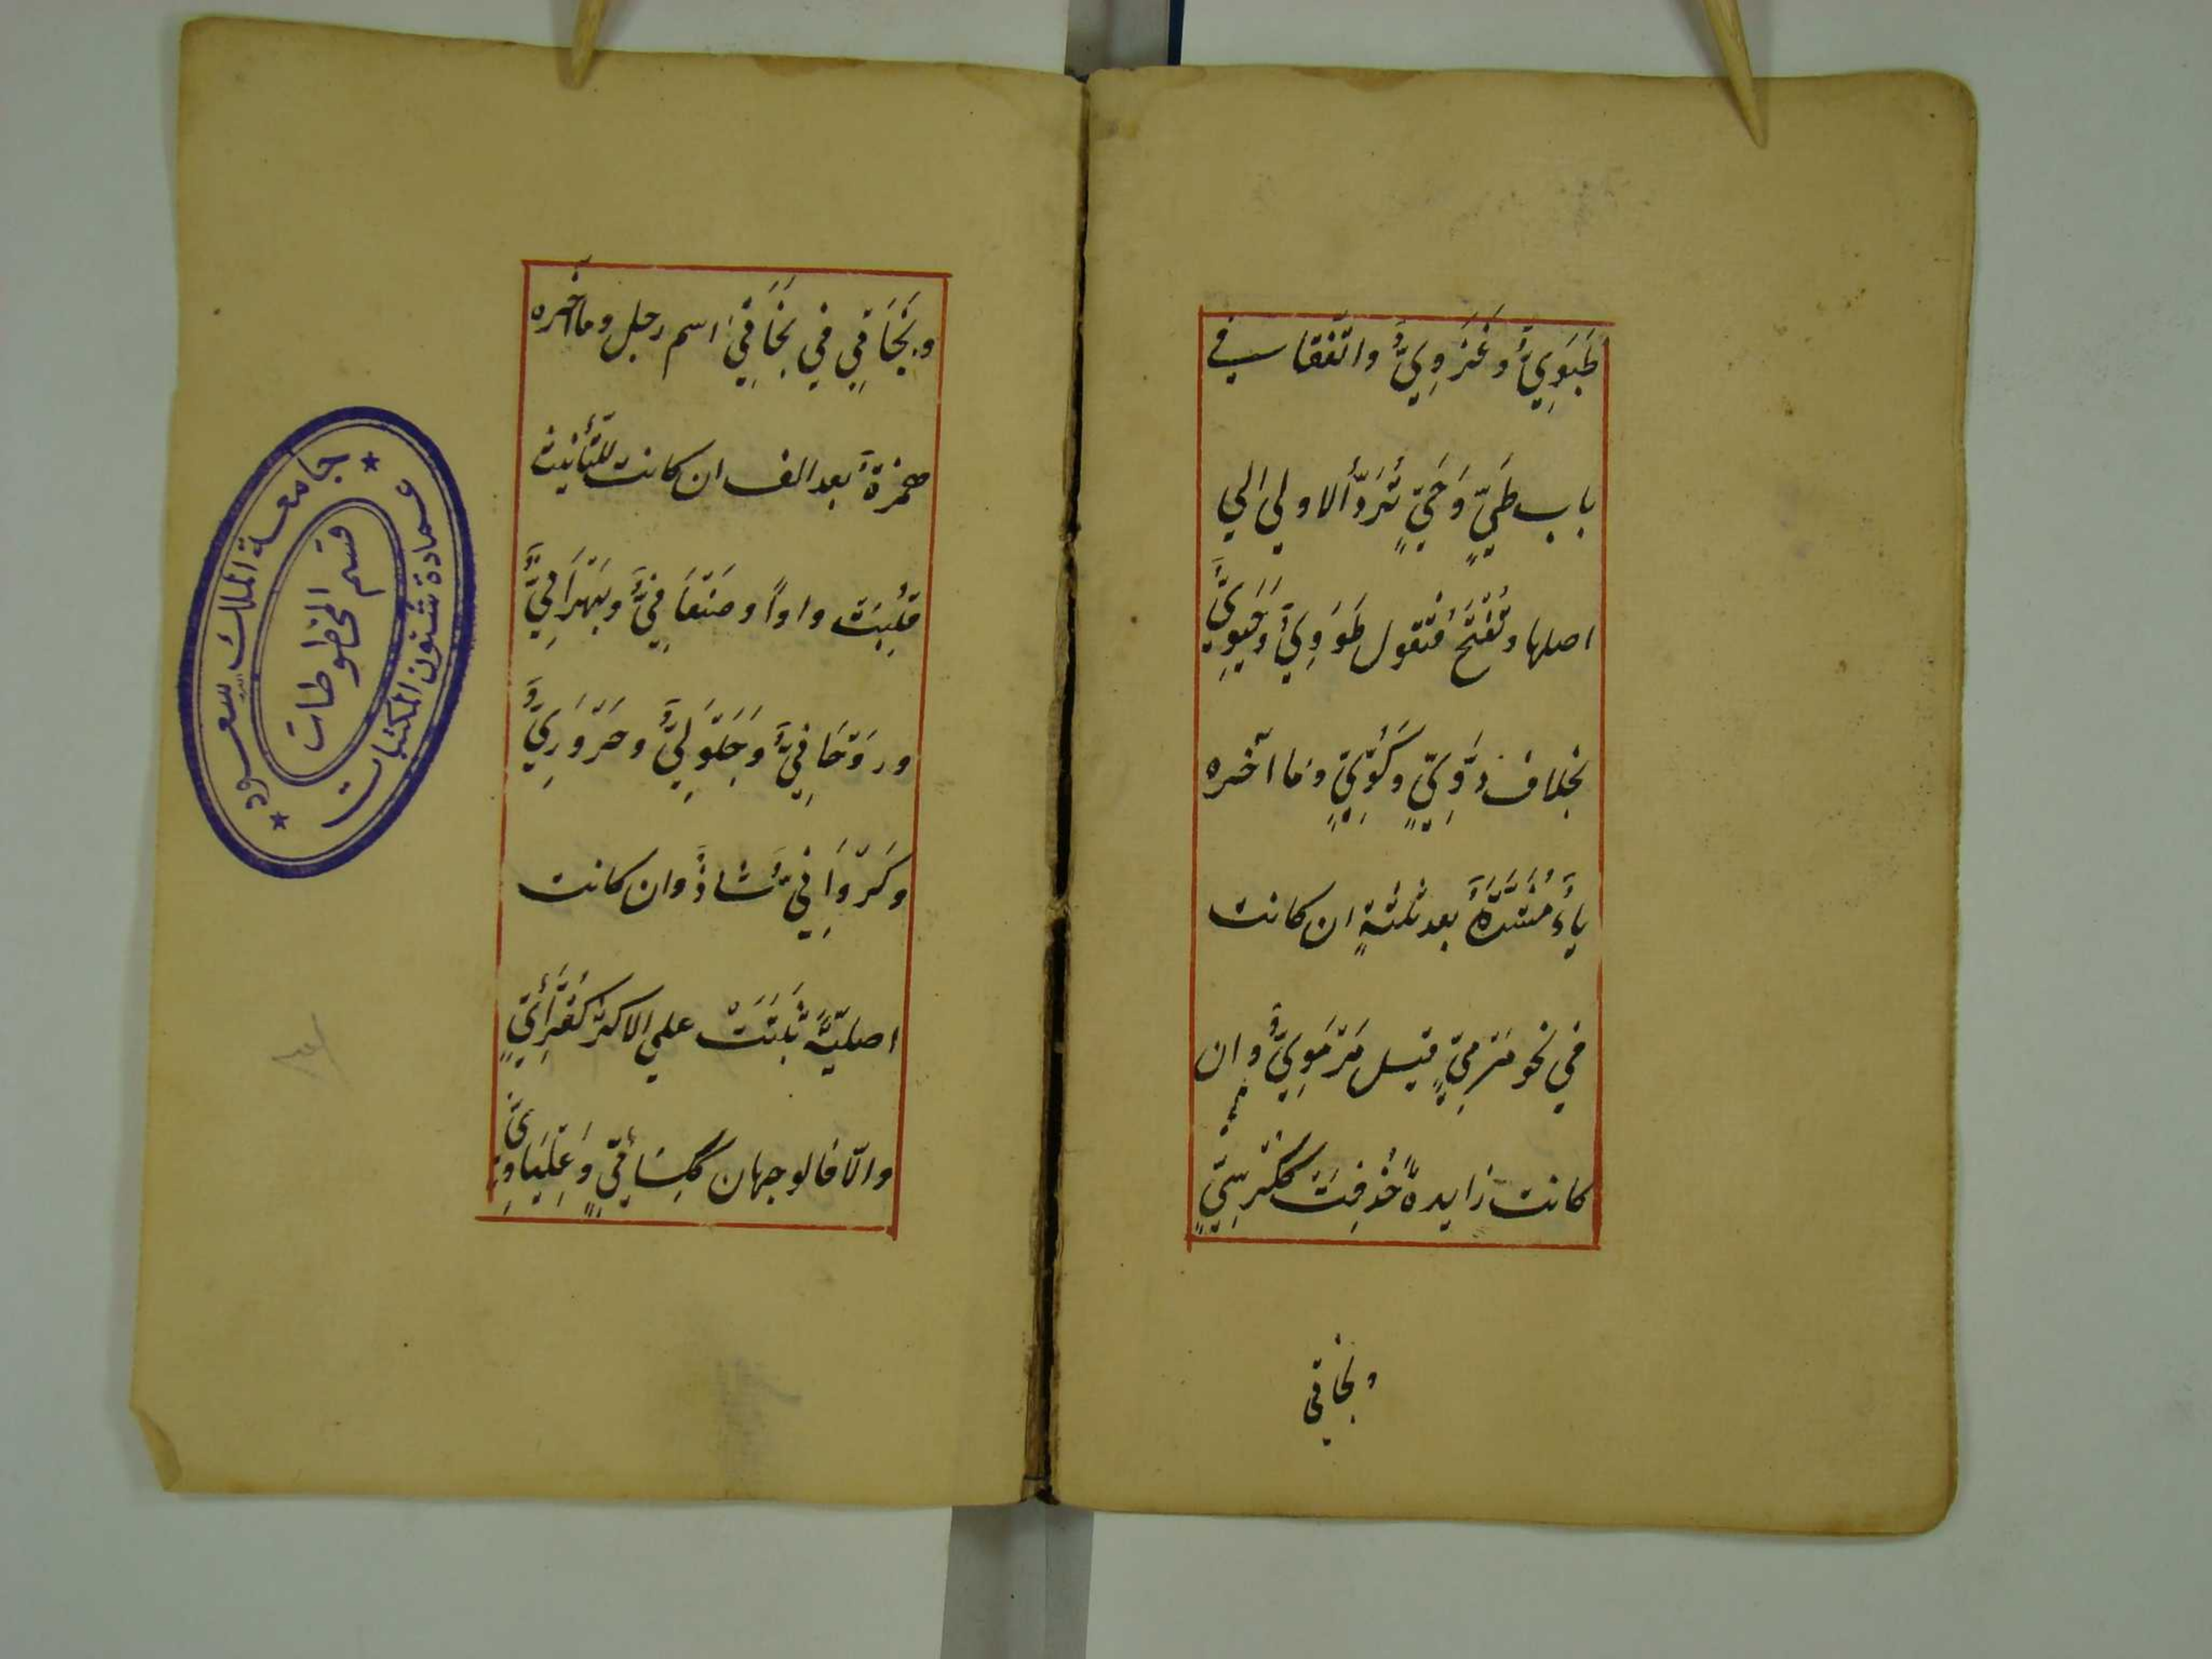 ظَبَوِيٌّ وَغَزَوِيٌّ واتّفقا في
باب طَيٍّ وَحَيٍّ تُرَدُّ الاولي الي
اصلها وتُفْتَحُ فتقول طَوَوِيٌّ وَحَيَوِيٌّ
بخلاف دَوِّيٍّ وكَوِّيٍّ وما آخره
ياءٌ مُشَدَّدَةٌ بعد ثلثةٍ ان كانت
في نحو مَرْمِيٍّ قيل مَرْمَوِيٌّ وان
كانت زايدةً حُذِفَتْ ككُرْسِيٍّ
وبخاتي
وبَخَاتِي في بَخَاتِيَّ اسم رجل وما آخره
همزةٌ بعد الف ان كانت للتّأنيث
قُلِبَت واواً وصَنْعَانِيٌّ وبَهْرَانِيٌّ
ورَوْحَانِيٌّ وَجَلُولِيٌّ وحَرُورِيٌّ
وكَرَوَانِيٌّ شاذٌّ وان كانت
اصليّةً ثَبَتَتْ علي الاكثر كقُرَّائِيٍّ
والّا فالوجهان ككِسَائِيٍّ وَعِلْبَاوِيٍّ
جامعة الملك سعود
عمادة شئون المكتبات
قسم المخطوطات